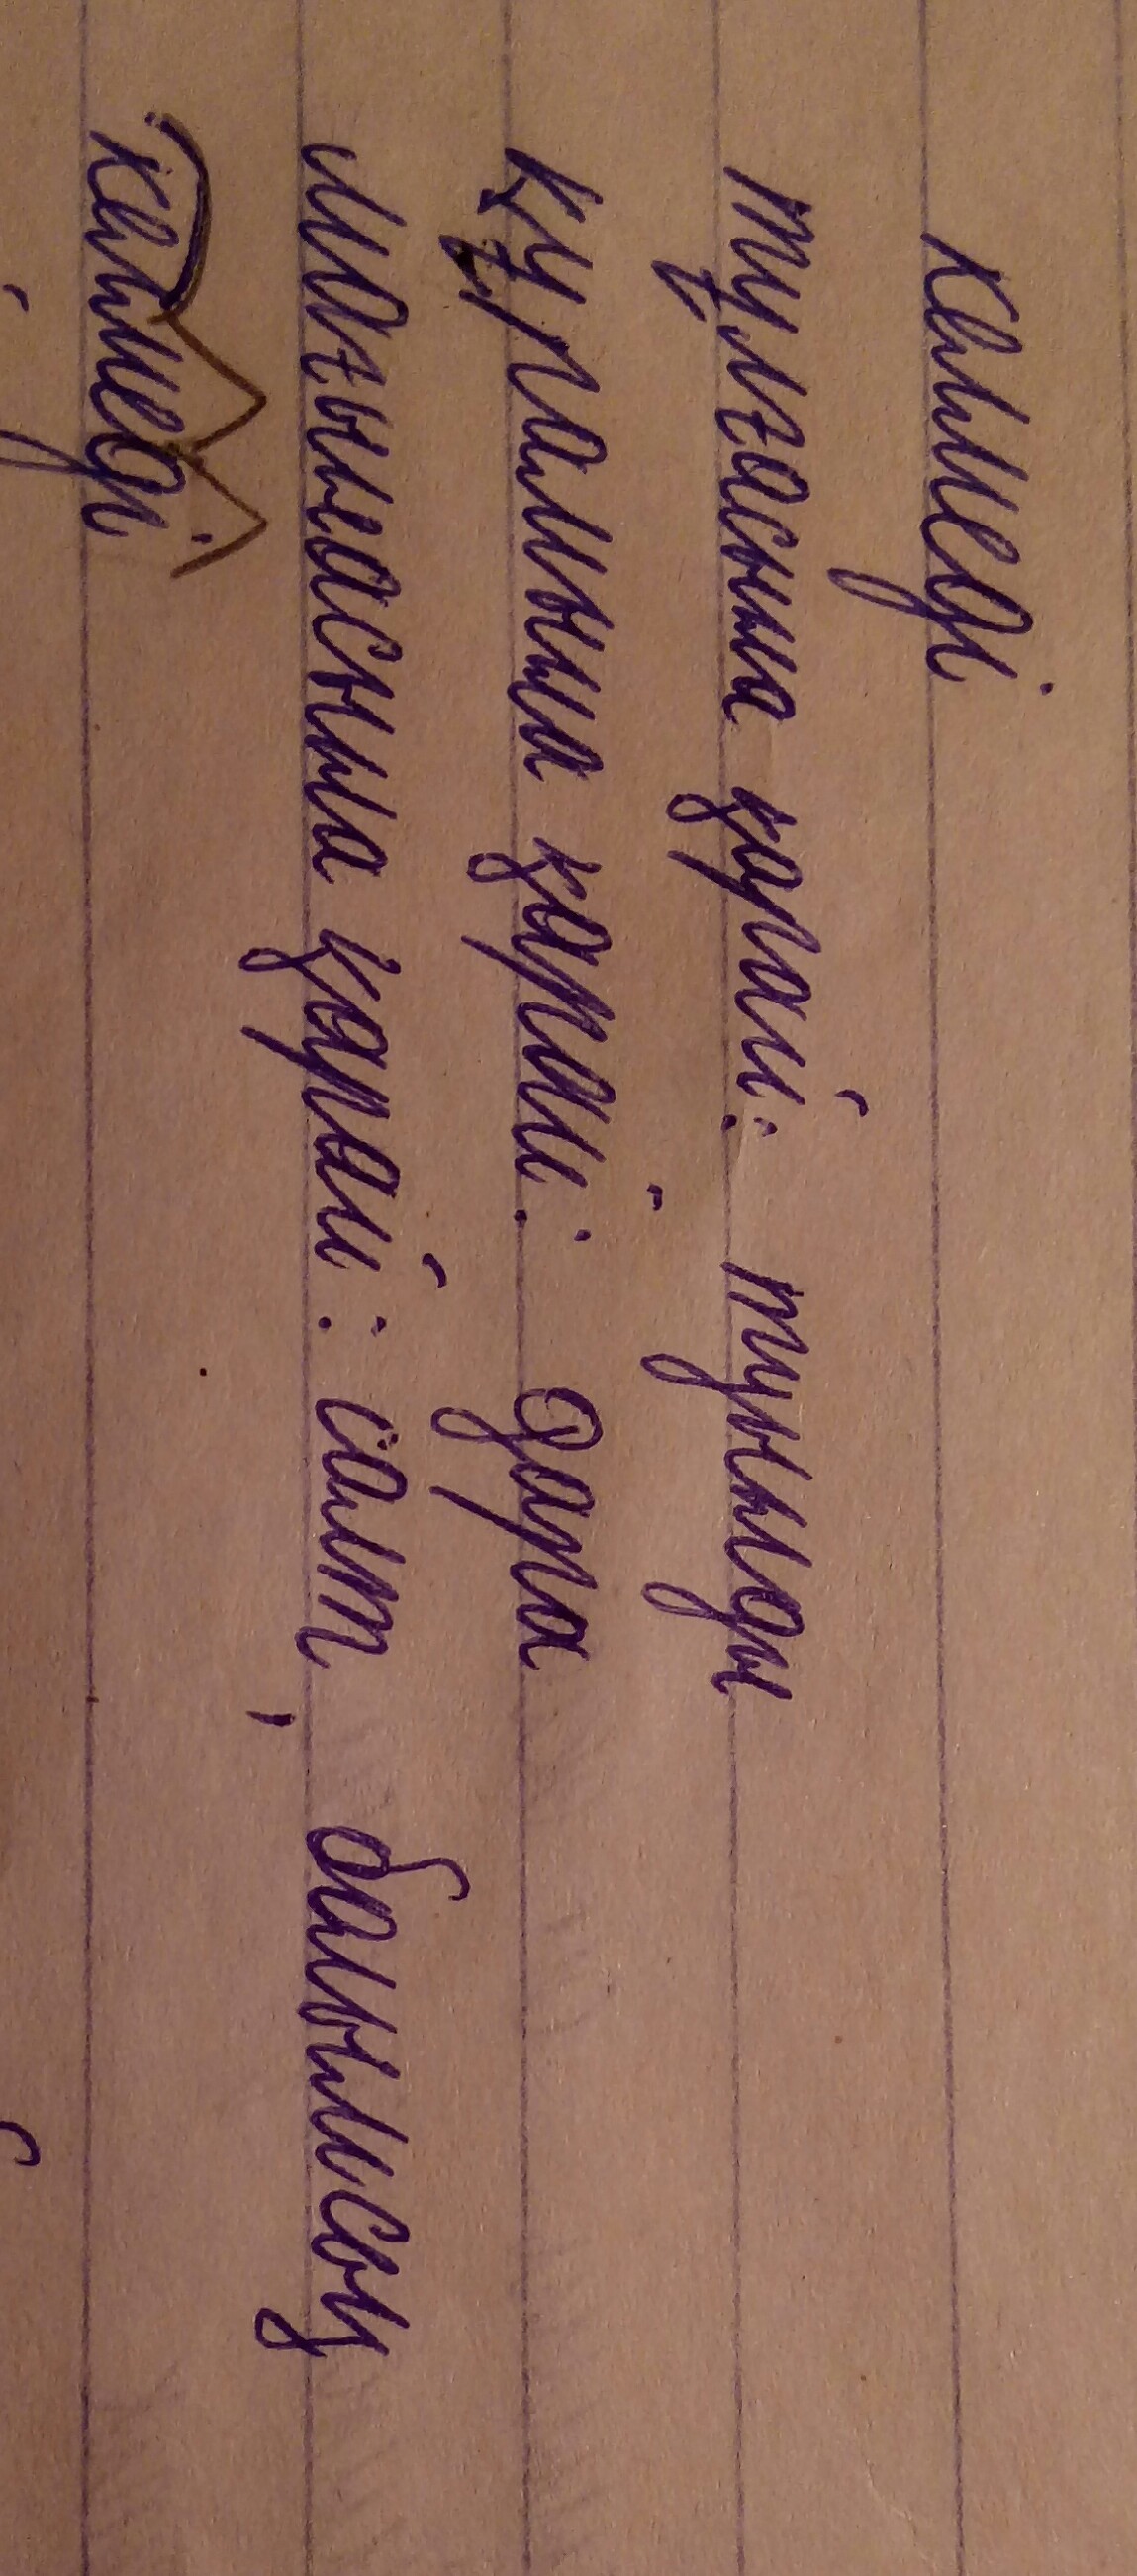 келмеді
тұлғасына қарай: туынды
құрамына қарай: дара
мағынасына қарай: салт, болымсыз
келмеді